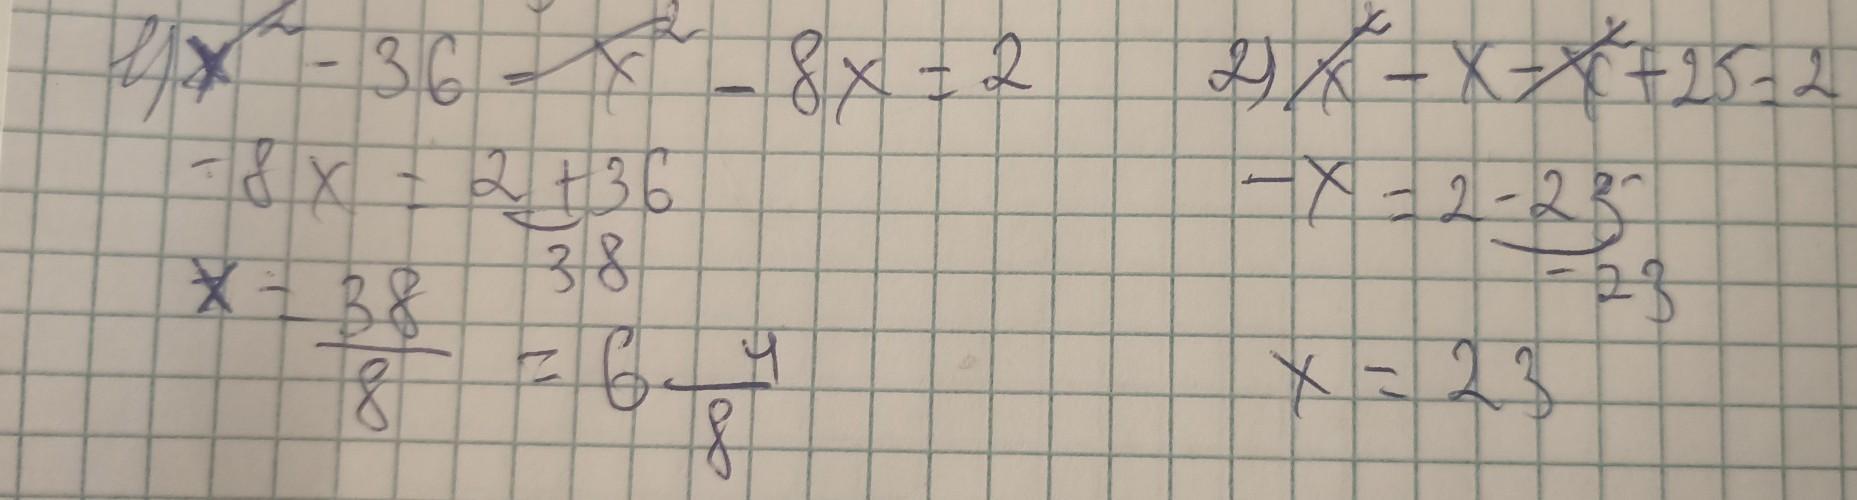 1) x² - 36 - x² - 8x = 2
-8x = 2 + 36
38
x = -38/8 = 6 4/8
2) x² - x - x² + 25 = 2
-x = 2 - 25
-23
x = 23